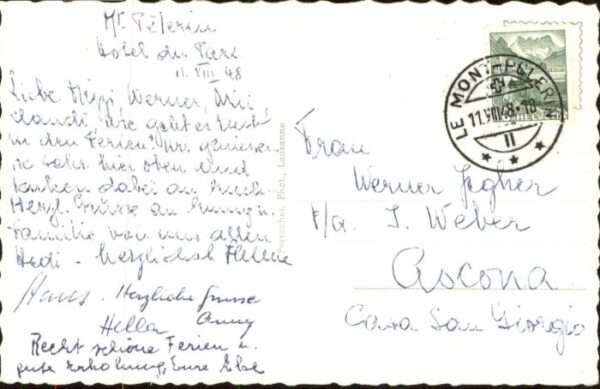 Mt. Pélerin
Hotel du Parc
11. VIII 48
Liebe Mizzi, Werner,
wie geht es Euch
in den Ferien? Wir geniessen
hier oben und
denken dabei an Euch.
Herzl. Grüsse an
Familie von uns allen
Hedi - herzlichst Helene
Hans. Herzliche Grüsse
Hella Anny
Recht schöne Ferien u.
gute Erholung, Eure Else
Perrochet, Phot., Lausanne
LE MONT-PÉLERIN
11.VIII.48-18
II
Frau
Werner
p/a. J. Weber
Ascona
Casa San Giorgio